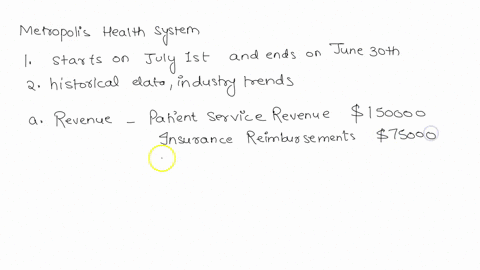 Metropolis Health System
1. starts on July 1st and ends on June 30th
2. historical data, industry trends
a. Revenue - Patient Service Revenue $150000
Insurance Reimbursements $75000